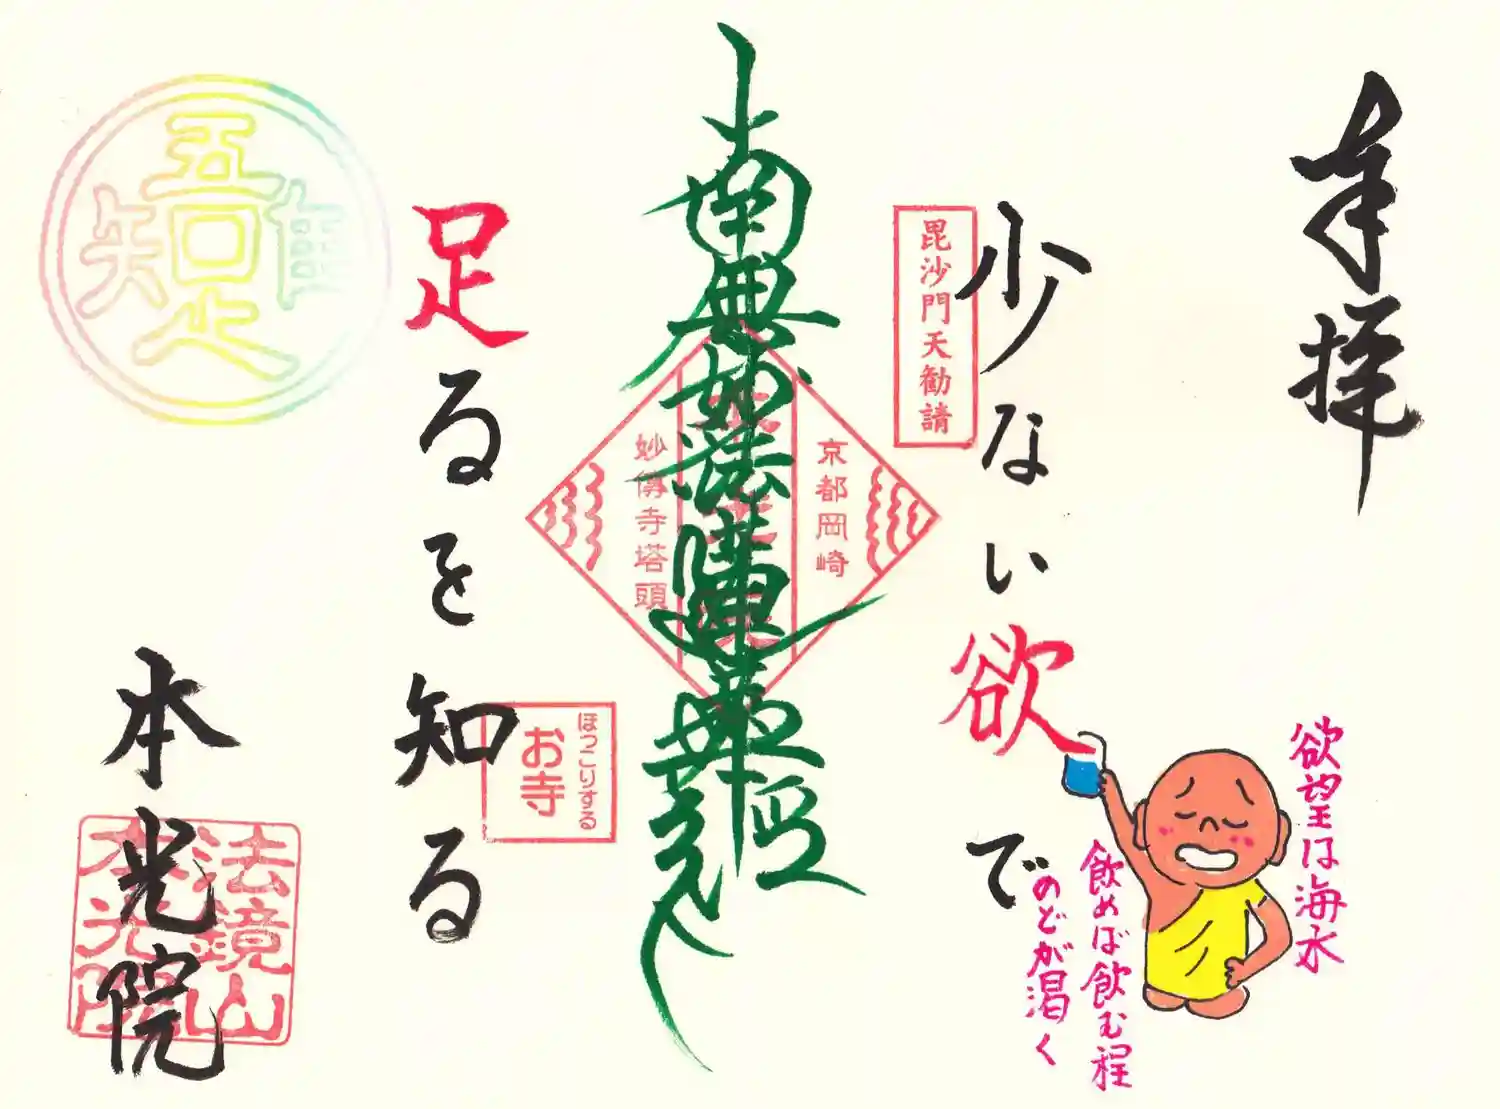 奉拝
欲望は海水
飲めば飲む程
のどが渇く
少ない欲で
毘沙門天勧請
京都岡崎
南無妙法蓮華経
妙傳寺塔頭
ほっこりする
お寺
足るを知る
吾唯足知
本光院
法鏡山
本光院